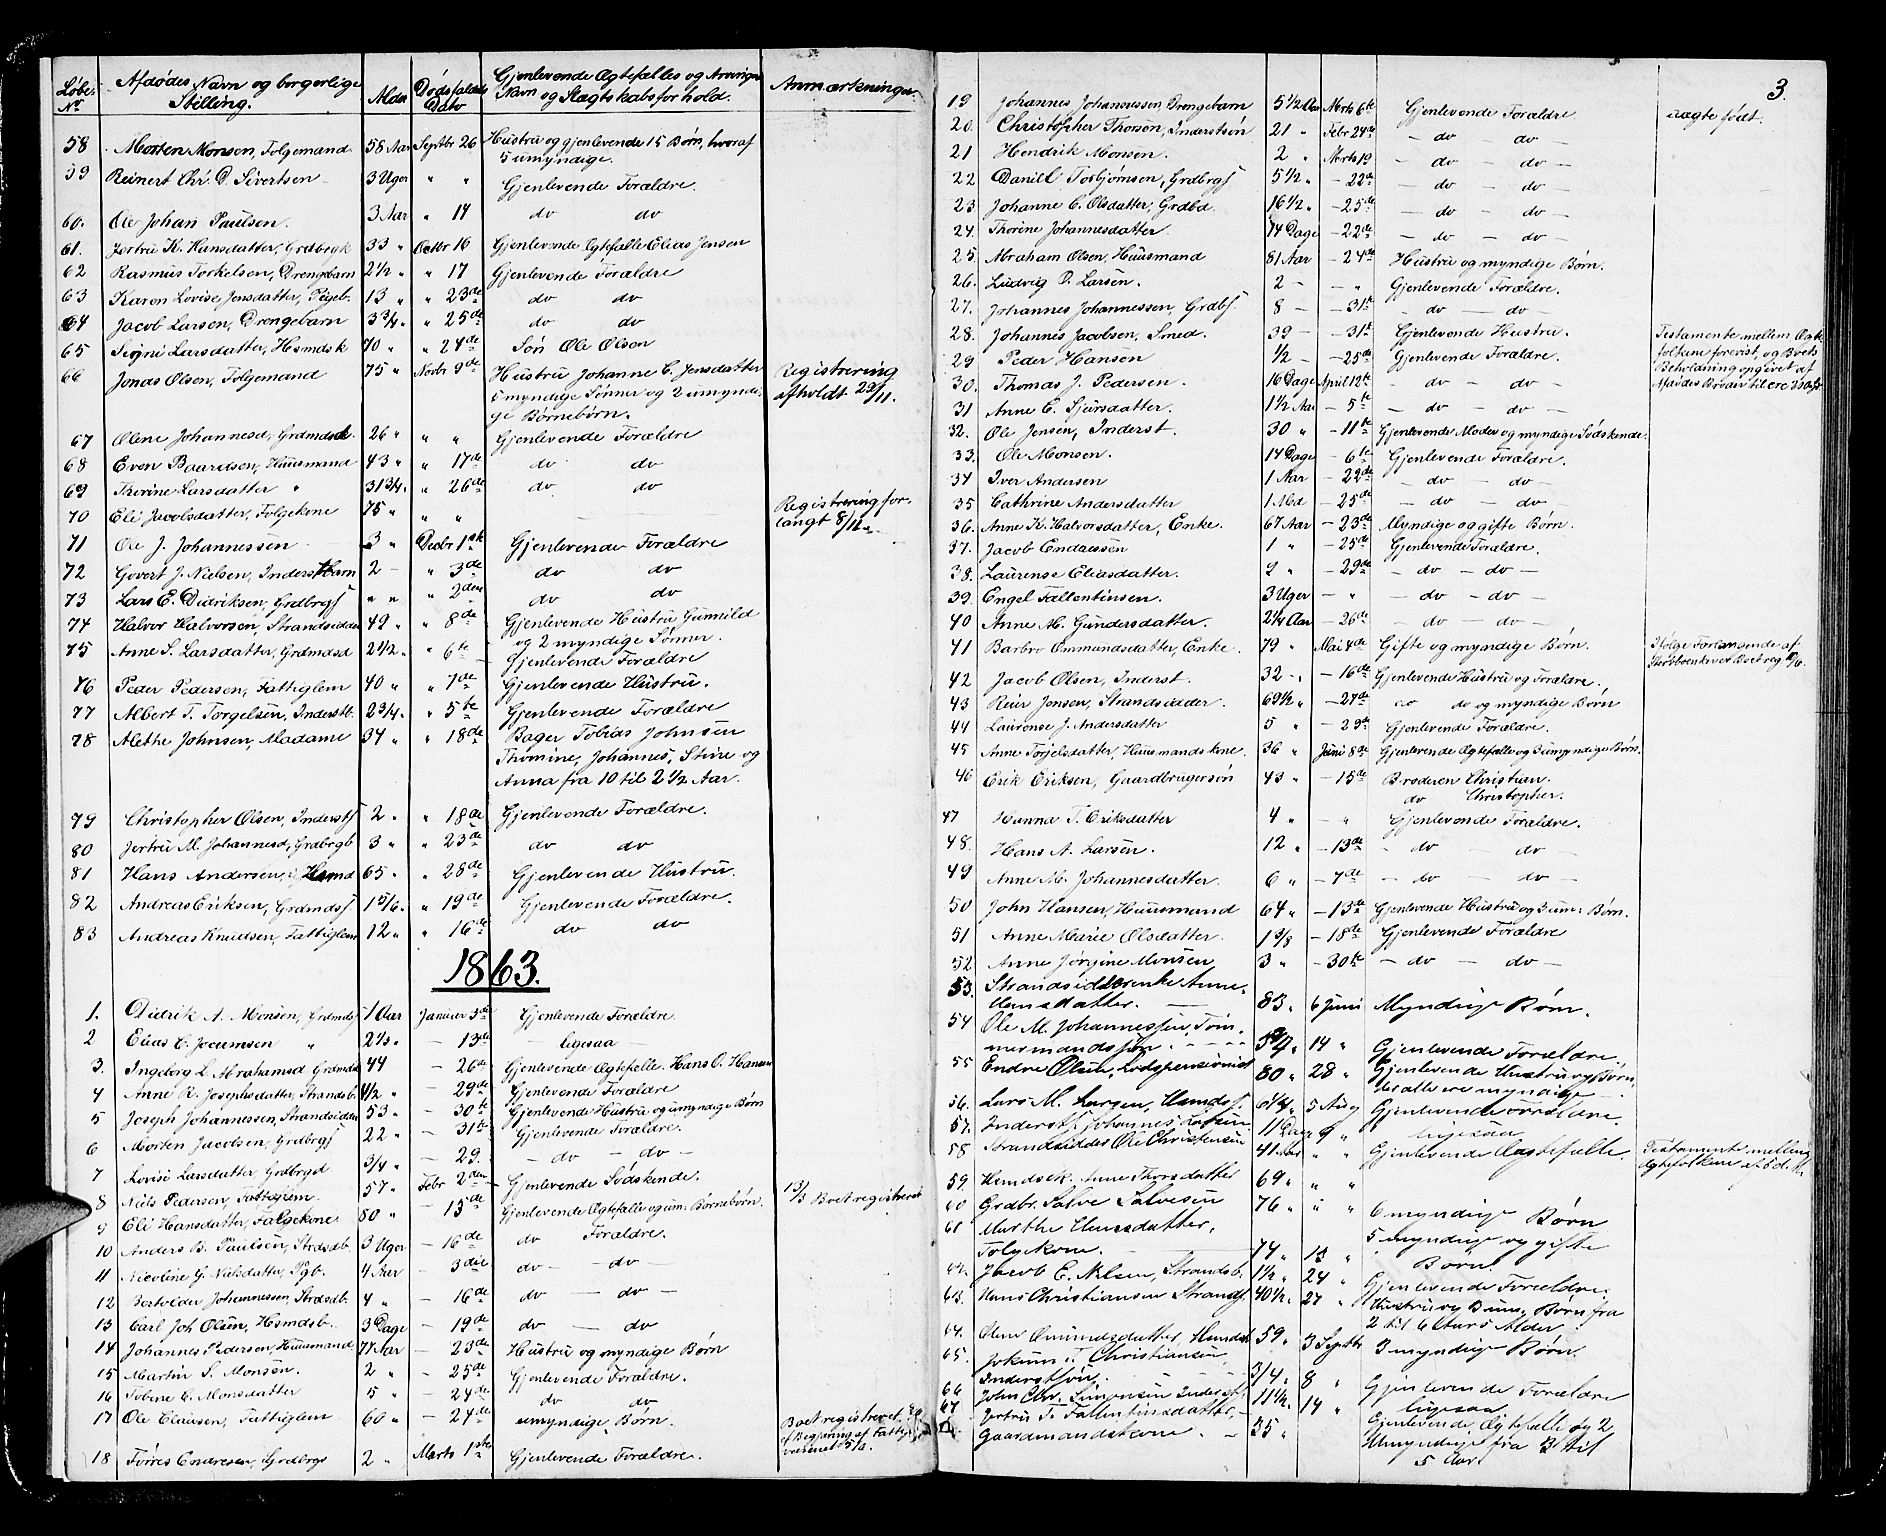 Løbe- Nº | Afdødes Navn og borgerlige Stilling. | Alder | Dødsfaldets Dato | Gjenlevende Ægtefælles og Arvinger Navn og Slægtskabsforhold. | Anmærkninger.
58 Morten Monsen, Folgemand. 58 Aar Septbr 26 Hustru og gjenlevende 15 Børn, hvoraf
5 umyndige.
59 Reinert Chr. D. Sivertsen 3 Uger " " Gjenlevende Forældre.
60. Ole Johan Paulsen. 3 Aar " 14 do do
61. Jertru K. Hansdatter, Grdbrgk 33 " Octbr 16 Gjenlevende Ægtefælle Elias Jensen
62 Rasmus Torkelsen, Drengebarn 2 1/2 " " 17 Gjenlevende Forældre
63 Karen Lovise Jensdatter, Pigeb. 13 " " 23de do do
64 Jacob Larsen, Drengebarn 3 3/4 " " 25de do do
65 Signi Larsdatter, Hsmdsk 70 " " 24de Søn Ole Olsen
66 Jonas Olsen, Folgemand 75 " Novbr 9de Hustru Johanne C. Jensdatter Registrering
5 myndige Sønner og 2 umyndi- afholdt 29/11.
ge Børnebørn.
67 Olene Johannesd, Grdmdsd. 26 " " " Gjenlevende Forældre
68 Even Baardsen, Huusmand 43 " " 17de do do
69 Thorine Larsdatter " 3 1/3 4. " 26de do do
70 Eli Jacobsdatter, Folgekone 75 " " " Registrering for-
langt 8/12.
71 Ole J. Johannessen 3 " Decbr 1ste Gjenlevende Forældre
72 Govert J. Nielsen, Inderstbarn 2 – " 3de do do
73 Lars E. Didriksen, Grdbrgs " " " 2den do do
74 Halvor Halvorsen, Strandsidder 49 " " 8de Gjenlevende Hustru Gunnild
og 2 myndige Sønner.
75 Anne S. Larsdatter, Grdmdsd 2 1/2 " " 6te Gjenlevende Forældre
76 Peder Pedersen, Fattiglem 40 " " 7de Gjenlevende Hustru.
77 Albert T. Torgelsen, Inderstb. 2 3/4 . " 5te Gjenlevende Forældre
78 Alethe Johnsen, Madame 34 " " 18de Bager Tobias Johnsen
Thomine, Johannes, Stine og
Anna fra 10 til 2 1/2 Aar.
79 Christopher Olsen, Indersts 2 " " 18de Gjenlevende Forældre.
80 Jertru M. Johannesd, Grdbrgb 3 " " 23de do do
81 Hans Andersen, Hsmd 65 " " 28de Gjenlevende Hustru.
82 Andreas Eriksen, Grdmdss 1 5/6 . " 19de Gjenlevende Forældre.
83 Andreas Knudsen, Fattiglem 12 " " 16de do do
1863.
1. Didrik A. Monsen, Grdmds 1 Aar Januar 3de Gjenlevende Forældre.
2 Elias C. Jocumsen " 2 1/3 . – 13de – ligesaa –
3. Ingborg L. Abrahamsd Grdmdsk 44 – 26de Gjenlevende Ægtefælle. Hans O. Hansen
4 Anne R. Josephsdatter, Strandsb. 4 1/2 " – 29de Gjenlevende Forældre
5 Joseph Johannessen, Strandsidder 53 " – 30te Gjenlevende Hustru og umyndige Børn
6 Morten Jacobsen, Grdbrgs 22 " – 31te Gjenlevende Forældre.
7 Lovise Larsdatter, Grdbrgd 3/4 " – 29. – do – do –
8 Niels Pedersen, Fattiglem. 57 " Febr 2den Gjenlevende Sødskende.
9 Eli Hansdatter, Folgekone 80 " – 15de Gjenlevende Ægtefælle og um. Børnebørn. 13/3 Boet registreret
10 Anders B. Paulsen, Strdsdb. 3 Uger – 16de do Forældre.
11 Nicoline G. Nielsdatter, Pgb. 4 Aar – 3die do – do –
12 Bertolder Johannessen, Strdsdb. 4 " – 16de do – do –
13 Carl Joh Olsen, Hsmdsb. 3 Dage – 19de do – do
14 Johannes Pedersen, Huusmand 77 Aar – 23de Hustru og myndige Børn
15 Martin S. Monsen. 2 " – 25de Gjenlevende Forældre.
16 Tobine C. Monsdatter 5 " – 24de do do
17 Ole Clausen, Fattiglem 60 " – 24de umyndige Børn. Boet registreret
Begjæring af Fattig-
væsenet
18 Torres Endresen, Grdbrgs 2 " Marts 1ste Gjenlevende Forældre.
3.
19 Johannes Johannessen, Drengebarn 5 1/2 Aar Marts 6te Gjenlevende Forældre uægte født.
20. Christopher Thorsen, Inderstsøn 21 " Febr 24de – do – do –
21 Hendrik Monsen. 2 " Marts 19 – do – do –
22 Daniel Torbjørnsen, Grdbrgs 5 1/2 " – 22de – do – do –
23. Johanne C. Olsdatter, Grdbd. 16 1/2 " – 25de – do – do –
24. Thorine Johannesdatter 14 Dage – 22de – do – do –
25. Abraham Olsen, Huusmand 81 Aar – 24de Hustru og myndige Børn.
26. Ludvig P. Larsen. 2 – – " Gjenlevende Forældre.
27. Johannes Johannessen, Grdbs. 8 – – 31te – do – do –
28. Johannes Jacobsen, Smed. 39 – – 31te Gjenlevende Hustru. Testamente mellem Ægte-
29 Peder Hansen 1/2 – – 25de Gjenlevende Forældre. folkene forevist, og Boets
30. Thomas J. Pedersen. 16 Dage April 12te – do – do – Beholdning opgivet af
31 Anne C. Sjursdatter. 1 1/2 Aar – 5te – do – do –
32. Ole Jensen, Inderst. 30 " – 11te Gjenlevende Moder og myndige Sødskende.
33. Ole Monsen. 14 Dage – 6te Gjenlevende Forældre.
34 Iver Andersen 1 Aar – 22de – do – do –
35 Cathrine Andersdatter 1 Md – 25de – do – do –
36. Anne K. Halvorsdatter, Enke. 67 Aar – 23de Myndige og gifte Børn.
37. Jacob Endresen 1 " – 25de Gjenlevende Forældre.
38. Laurense Eliasdatter. 2 " – 29de – do – do –
39. Engel Fallentinsen. 3 Uger – " – do – do –
40 Anne M. Gundersdatter. 2 1/4 Aar – 26de – do – do –
41 Barbro Ommundsdatter, Enke. 79 " Mai 4de Gifte og myndige Børn. Ifølge Forlangende af
Boet reg.
42 Jacob Olsen, Inderst. 32 – " – 16de Gjenlevende Hustru og Forældre.
43 Reier Jensen, Strandsidder. 69 1/2 " – 27de do do og myndige Børn
44 Laurense J. Andersdatter 5 " – 29de Gjenlevende Forældre.
45 Anne Torjelsdatter, Huusmandskne. 36 " Juni 8de Gjenlevende Ægtefælle og 3 umyndige Børn.
46 Erik Eriksen, Gaardbrugersøn 43 " – 15de Broderen Christian.
do Christopher.
47 Hanna T. Eriksdatter 4 " – " Gjenlevende Forældre.
48. Hans A. Larsen. 12 " – 13de – do – do –
49 Anne M. Johannesdatter. 6 " – 7de – do – do –
50 John Hansen, Huusmand 64 " – 13te Gjenlevende Hustru og 3 um: Børn.
51 Anne Marie Olsdatter. 1 3/8 – 18de Gjenlevende Forældre
52 Anne Jørgine Monsen 3 " – 30te – do – do –
53. Strandsidderenke Anne
Hansdatter. – 83 " 6 Juni Myndige Børn.
54 Ole M. Johannessen, Tøm-
mermandssøn. 3/4 " 14 " Gjenlevende Forældre.
55 Endre Olsen, Lodspensionist 80 " 28 " Gjenlevende Hustru og Børn,
der alle ere myndige
56. Lars M. Larsen, Hsmdss. 6 1/4 " 5 Aug Gjenlevende Forældre.
57. Inderstf. Johannes Larsen 11 Dage 9 " ligesaa
58 Strandsidder Ole Christensen 41 Aar " " Gjenlevende Ægtefælle. Testamente mellem
Ægtefolkene af
59. Hsmdsek. Anne Thorsdatter 69 " " "
60 Grdbr. Salve Salvesen 76 " " " 6 myndige Børn
61 Marthe Hansdatter, 5 myndige og gifte
Folgekone. – 74 " 13 " Børn.
62. Jacob E. Nilsen, Strandsb. 1 1/2 " 24 " Gjenlevende Forældre.
63. Hans Christiansen Strands. 40 1/2 " 27 " Hustru og 3 um: Børn fra
2 til 6 Aars Alder
64. Olene Ommundsdatter, Hsmdsk 59 " 3 Septbr 3 myndige Børn.
65. Jokum T. Christiansen,
Inderstsøn. – 3/4 " 8 " Gjenlevende Forældre
66 John Chr. Simonsen Inderst. 11 1/2 " 14 " ligesaa
67. Jertru T. Fallentinsdatter, Gjenlevende Ægtefælle og 2
Gaardmandskone. – 35 " Umyndige fra 3 til
5 Aar.